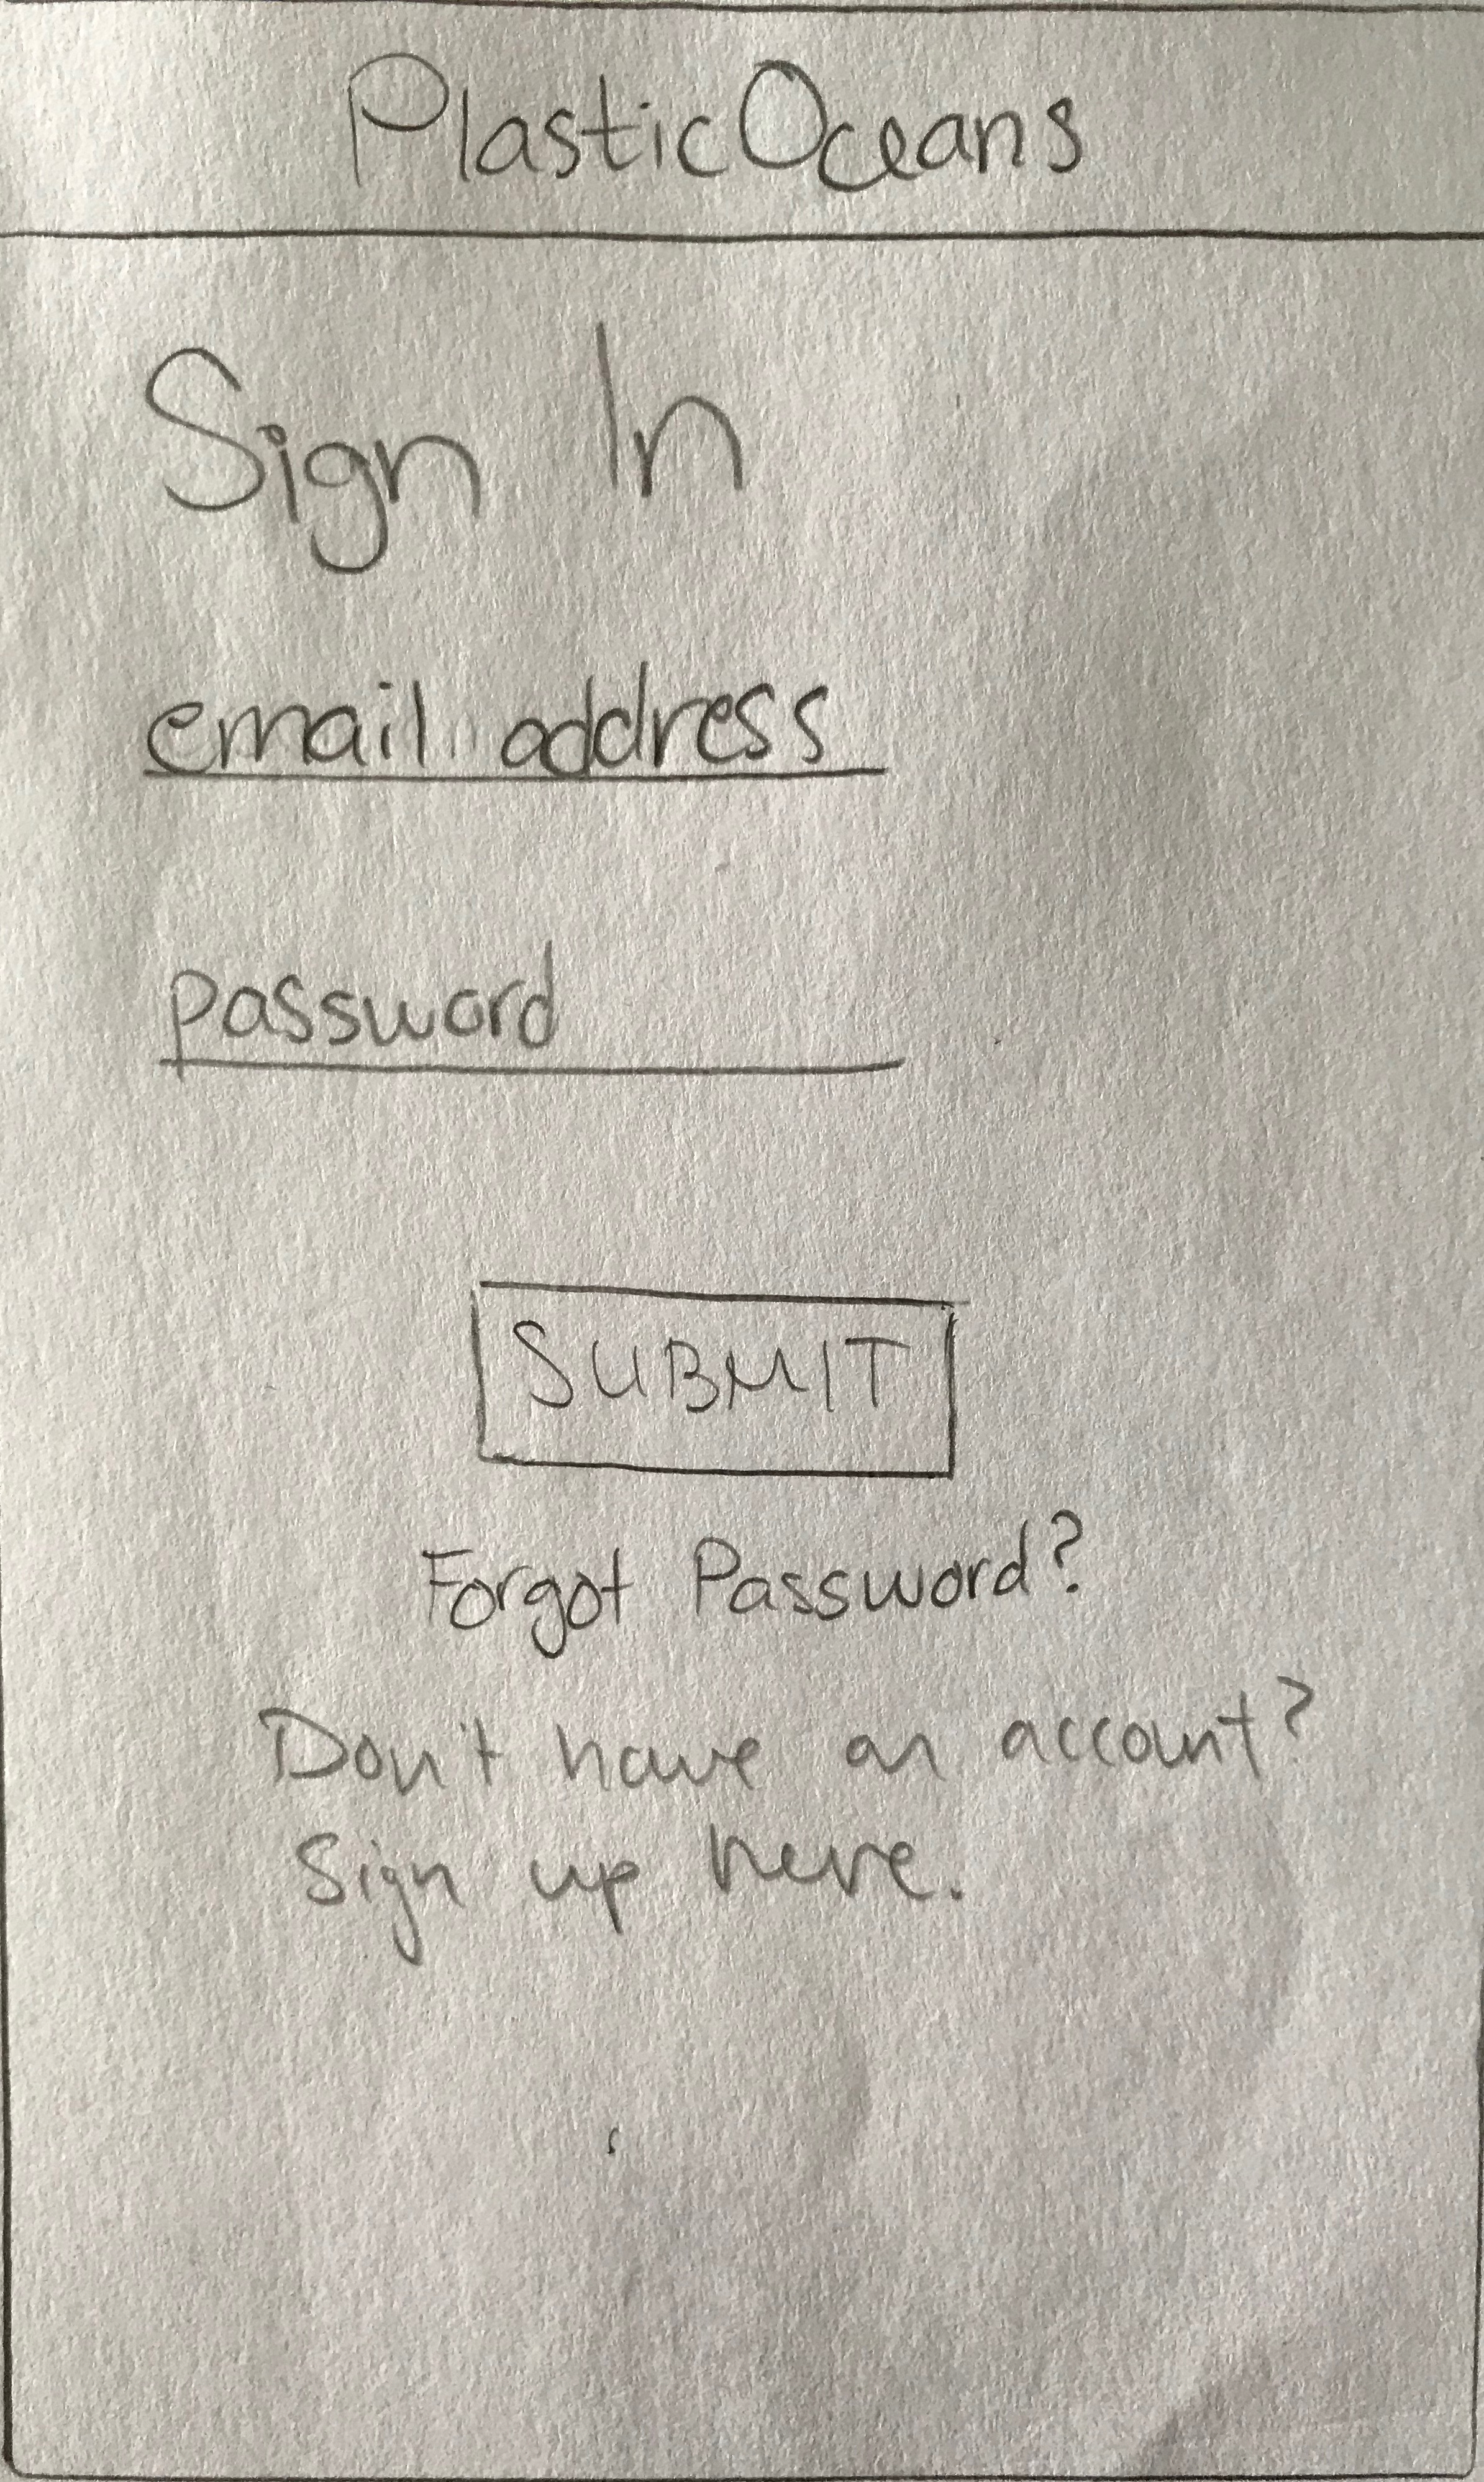 PlasticOceans
Sign In
email address
password
SUBMIT
Forgot Password?
Don't have an account?
Sign up here.